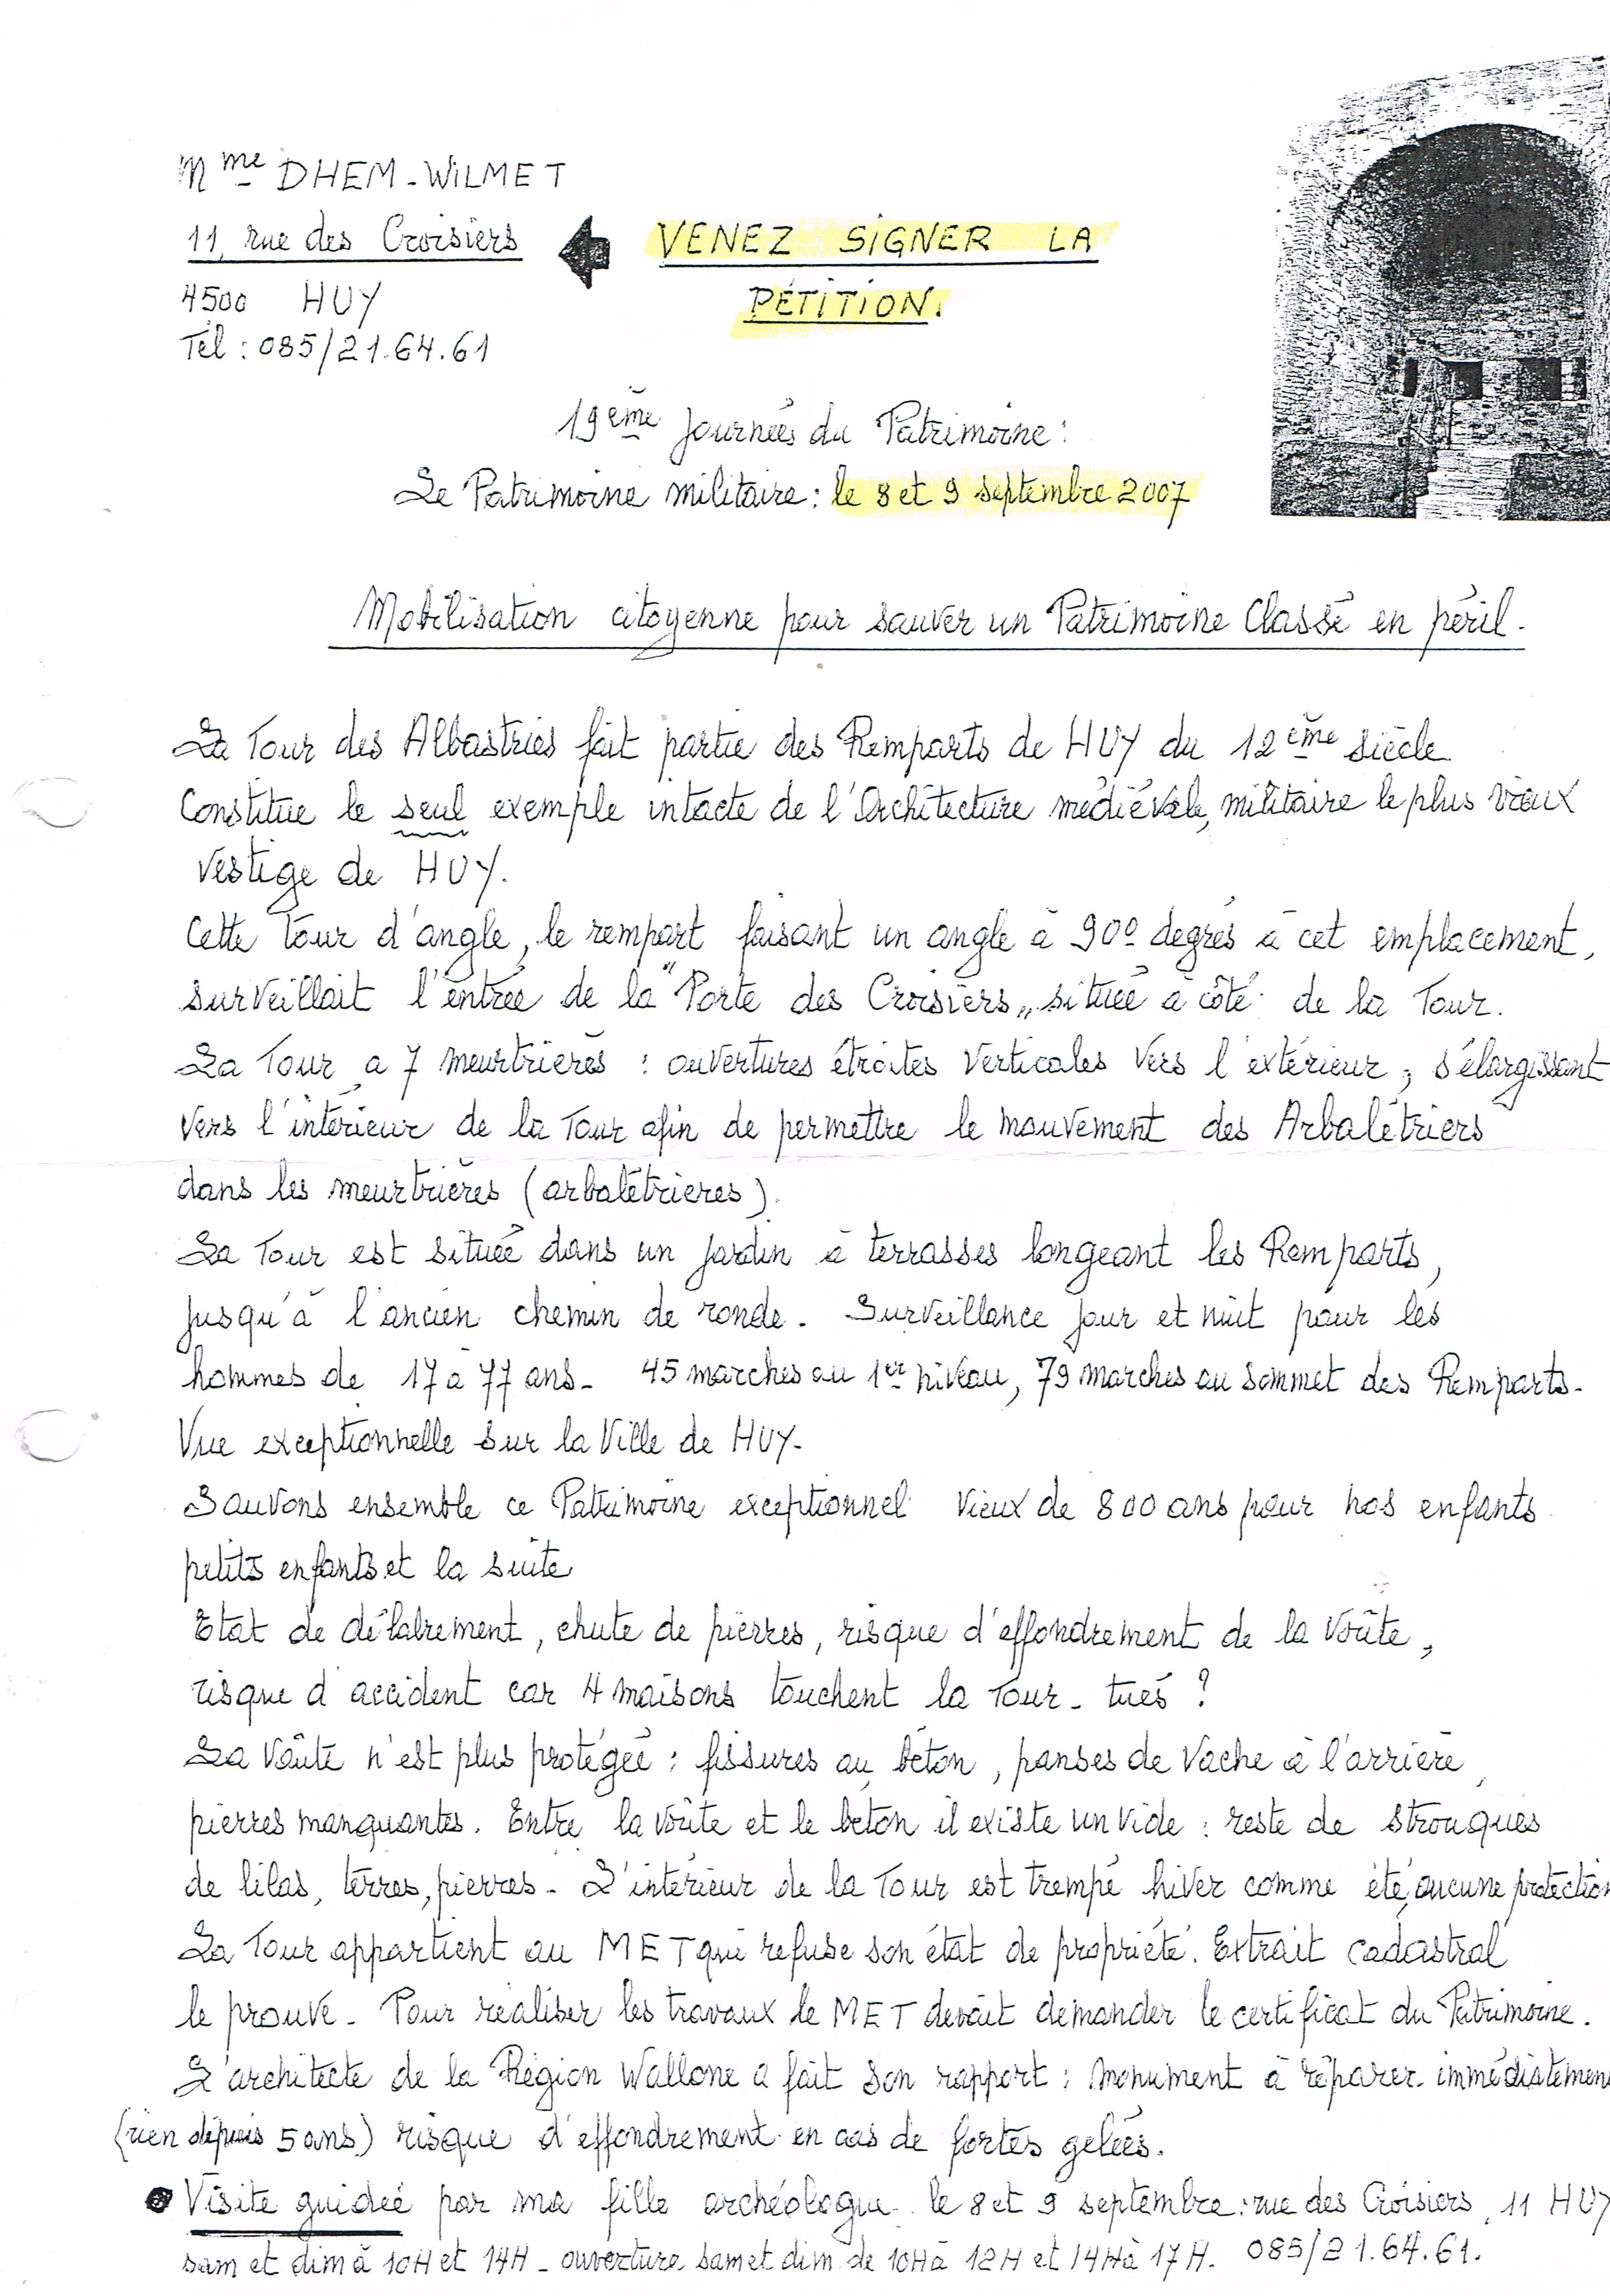 Mme DHEM-WILMET
11, rue des Croisiers
VENEZ SIGNER LA
PÉTITION.
4500 HUY
Tél : 085/21.64.61
19ème Journées du Patrimoine :
Le Patrimoine militaire : le 8 et 9 septembre 2007
Mobilisation citoyenne pour sauver un Patrimoine Classé en péril.
La Tour des Albastriés fait partie des Remparts de HUY du 12ème siècle.
Constitue le seul exemple intacte de l'Architecture médiévale, militaire le plus vieux
vestige de HUY.
Cette Tour d'angle, le rempart faisant un angle à 90° degrés à cet emplacement,
surveillait l'entrée de la "Porte des Croisiers" située à côté de la Tour.
La Tour a 7 meurtrières : ouvertures étroites verticales vers l'extérieur, s'élargissant
vers l'intérieur de la Tour afin de permettre le mouvement des Arbalétriers
dans les meurtrières (arbalétrières).
La Tour est située dans un jardin à terrasses longeant les Remparts,
jusqu'à l'ancien chemin de ronde. Surveillance jour et nuit pour les
hommes de 17 à 77 ans - 45 marches au 1er niveau, 79 marches au sommet des Remparts.
Vue exceptionnelle sur la Ville de HUY.
Sauvons ensemble ce Patrimoine exceptionnel vieux de 800 ans pour nos enfants
petits enfants et la suite
Etat de délabrement, chute de pierres, risque d'effondrement de la voûte,
risque d'accident car 4 maisons touchent la Tour - tués ?
La voûte n'est plus protégée : fissures au béton, panses de vache à l'arrière,
pierres manquantes. Entre la voûte et le béton il existe un vide : reste de stronques
de lilas, terres, pierres - L'intérieur de la Tour est trempé hiver comme été, aucune protection
La Tour appartient au MET qui refuse son état de propriété. Extrait cadastral
le prouve - Pour réaliser les travaux le MET devait demander le certificat du Patrimoine.
L'architecte de la Région Wallone a fait son rapport : Monument à réparer immédiatemen
(rien depuis 5 ans) risque d'effondrement en cas de fortes gelées.
• Visite guidée par ma fille archéologue le 8 et 9 septembre : rue des Croisiers, 11 HUY
sam et dim à 10H et 14H - ouverture sam et dim de 10H à 12H et 14H à 17H. 085/21.64.61.